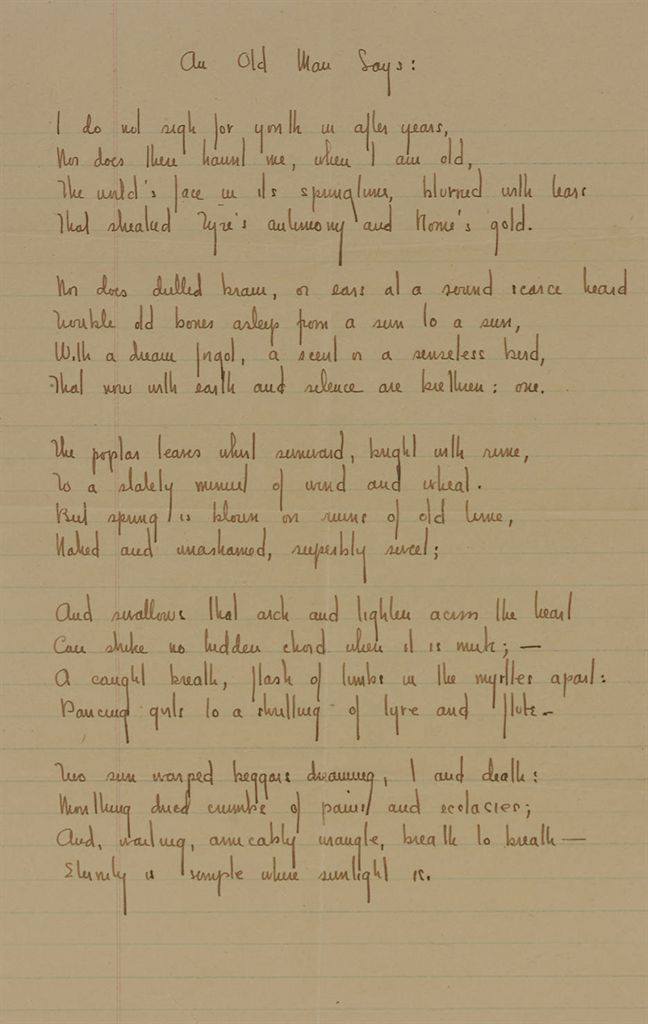 An Old Man Says:
I do not sigh for youth in after years,
Nor does there haunt me, when I am old,
The world's face in its springtime, blurred with tears
That sheathed Tyre's antimony and Rome's gold.
Nor does dulled brain, or ears at a sound scarce heard
Trouble old bones asleep from a sun to a sun,
With a dream forgot, a scent or a senseless bird,
That now with earth and silence are brethren: one.
The poplar leaves whirl sunward, bright with rime,
To a stately minuet of wind and wheat.
But spring is blown on ruins of old time,
Naked and unashamed, superbly sweet;
And swallows that arch and tighten across the heart
Can strike no hidden chord when it is mute; —
A caught breath, flash of limbs in the myrtles apart:
Dancing girls to a shrilling of lyre and flute —
Two sun warped beggars dreaming, I and death:
Mouthing dried crumbs of pains and ecstacies;
And, waiting, amicably wrangle, breath to breath —
Eternity is simple where sunlight is.